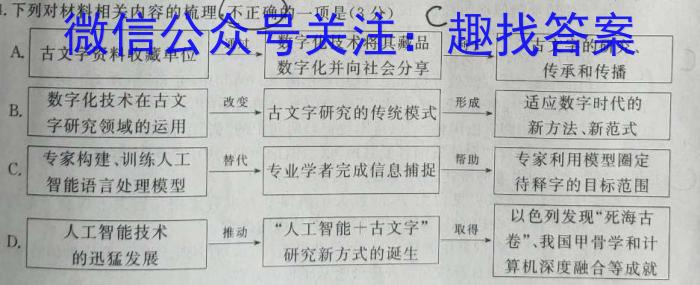 4.下列对材料相关内容的梳理,不正确的一项是(3分) C
微信公众号关注:趣找答案
A. 古文字资料收藏单位 通过 数字化技术将其藏品
数字化并向社会分享
传承和传播
B. 数字化技术在古文
字研究领域的运用
改变
古文字研究的传统模式
形成
适应数字时代的
新方法、新范式
C. 专家构建、训练人工
智能语言处理模型
替代
专业学者完成信息捕捉
帮助
专家利用模型圈定
待释字的目标范围
D. 人工智能技术
的迅猛发展
推动
“人工智能+古文字”
研究新方式的诞生
取得
以色列发现“死海古
卷”、我国甲骨学和计
算机深度融合等成就